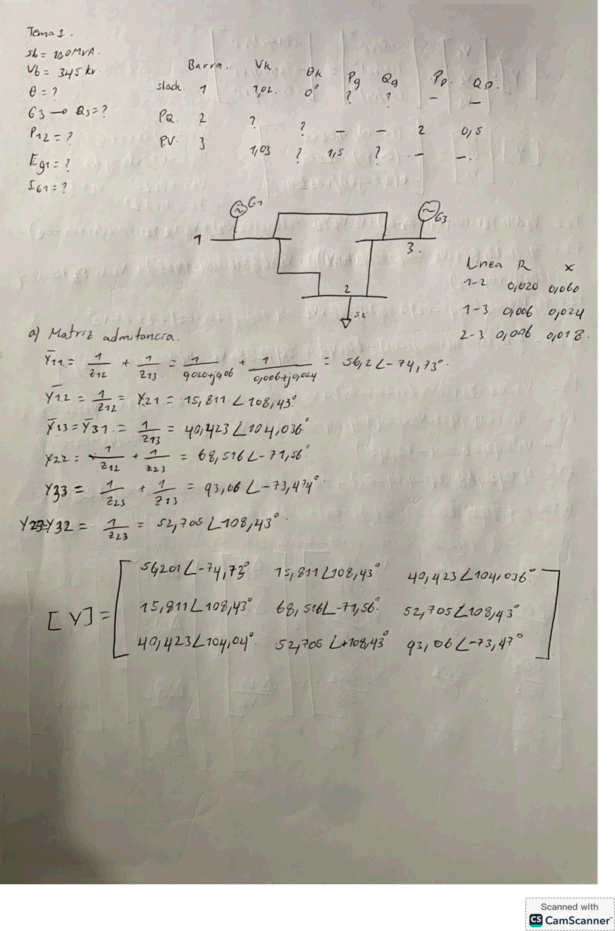 Tema 1.
Sb = 100MVA.
Vb = 345 kv.
θ = ?
G3 → Q3 = ?
P12 = ?
Eg1 = ?
SG1 = ?
Barra. Vk. θk Pg Qg PD QD.
slack 1 1,02. 0° ? ? - -
PQ 2 ? ? - - 2 0,5
PV 3 1,03 ? 1,5 ? - -.
G1
G3
1
3.
2
S2
Linea R X
1-2 0,020 0,060
1-3 0,006 0,024
2-3 0,006 0,018
a) Matriz admitancia.
Y11 = 1/Z12 + 1/Z13 = 1/0,020+j0,06 + 1/0,006+j0,024 = 56,2∠-74,73°.
Y12 = 1/Z12 = Y21 = 15,811∠108,43°
Y13 = Y31 = 1/Z13 = 40,423∠104,036°
Y22 = 1/Z12 + 1/Z23 = 68,516∠-71,56°
Y33 = 1/Z23 + 1/Z13 = 93,06∠-73,474°
Y23=Y32 = 1/Z23 = 52,705∠108,43°
56,201∠-74,73° 15,811∠108,43° 40,423∠104,036°
[Y] = 15,811∠108,43° 68,516∠-71,56° 52,705∠108,43°
40,423∠104,04° 52,705∠+108,43° 93,06∠-73,47°
Scanned with
CS CamScanner